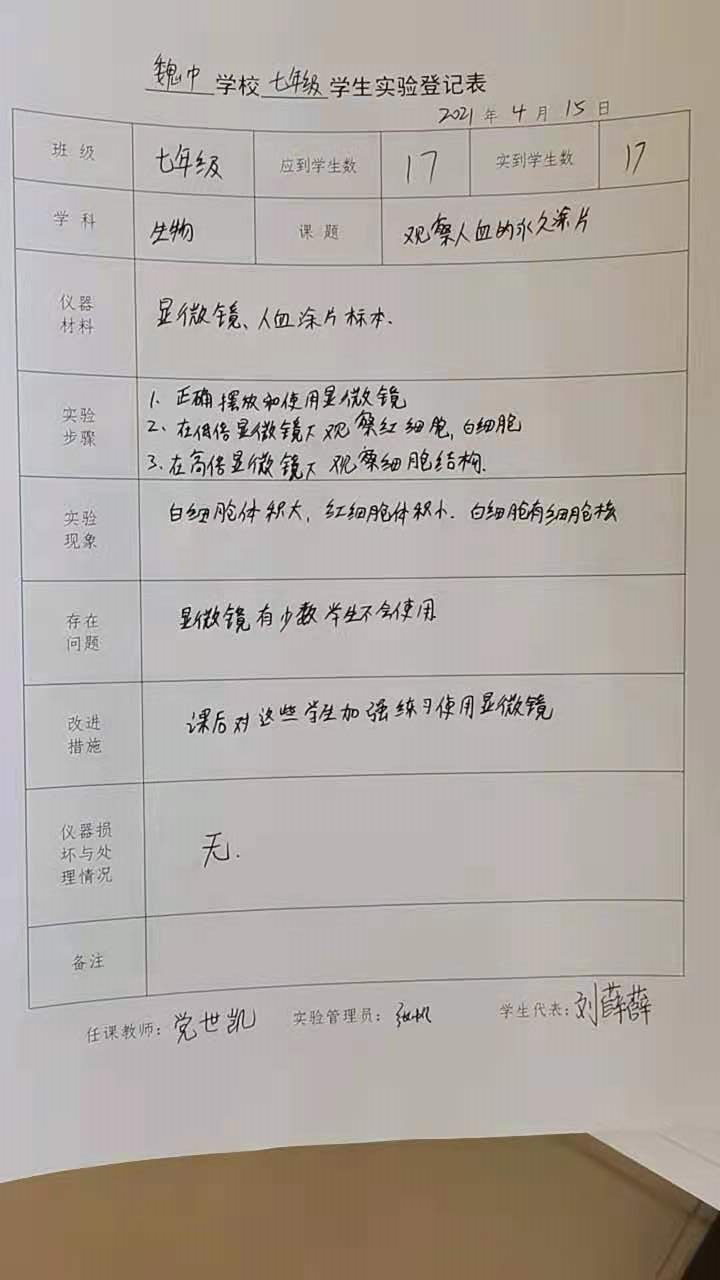 魏中学校七年级学生实验登记表
2021年4月15日
班级 七年级 应到学生数 17 实到学生数 17
学科 生物 课题 观察人血的永久涂片
仪器
材料
显微镜、人血涂片标本.
实验
步骤
1、正确摆放和使用显微镜
2、在低倍显微镜下观察红细胞,白细胞
3、在高倍显微镜下观察细胞结构.
实验
现象
白细胞体积大,红细胞体积小.白细胞有细胞核
存在
问题
显微镜有少数学生不会使用
改进
措施
课后对这些学生加强练习使用显微镜
仪器损
坏与处
理情况
无.
备注
任课教师:党世凯 实验管理员: 学生代表:刘薛薛